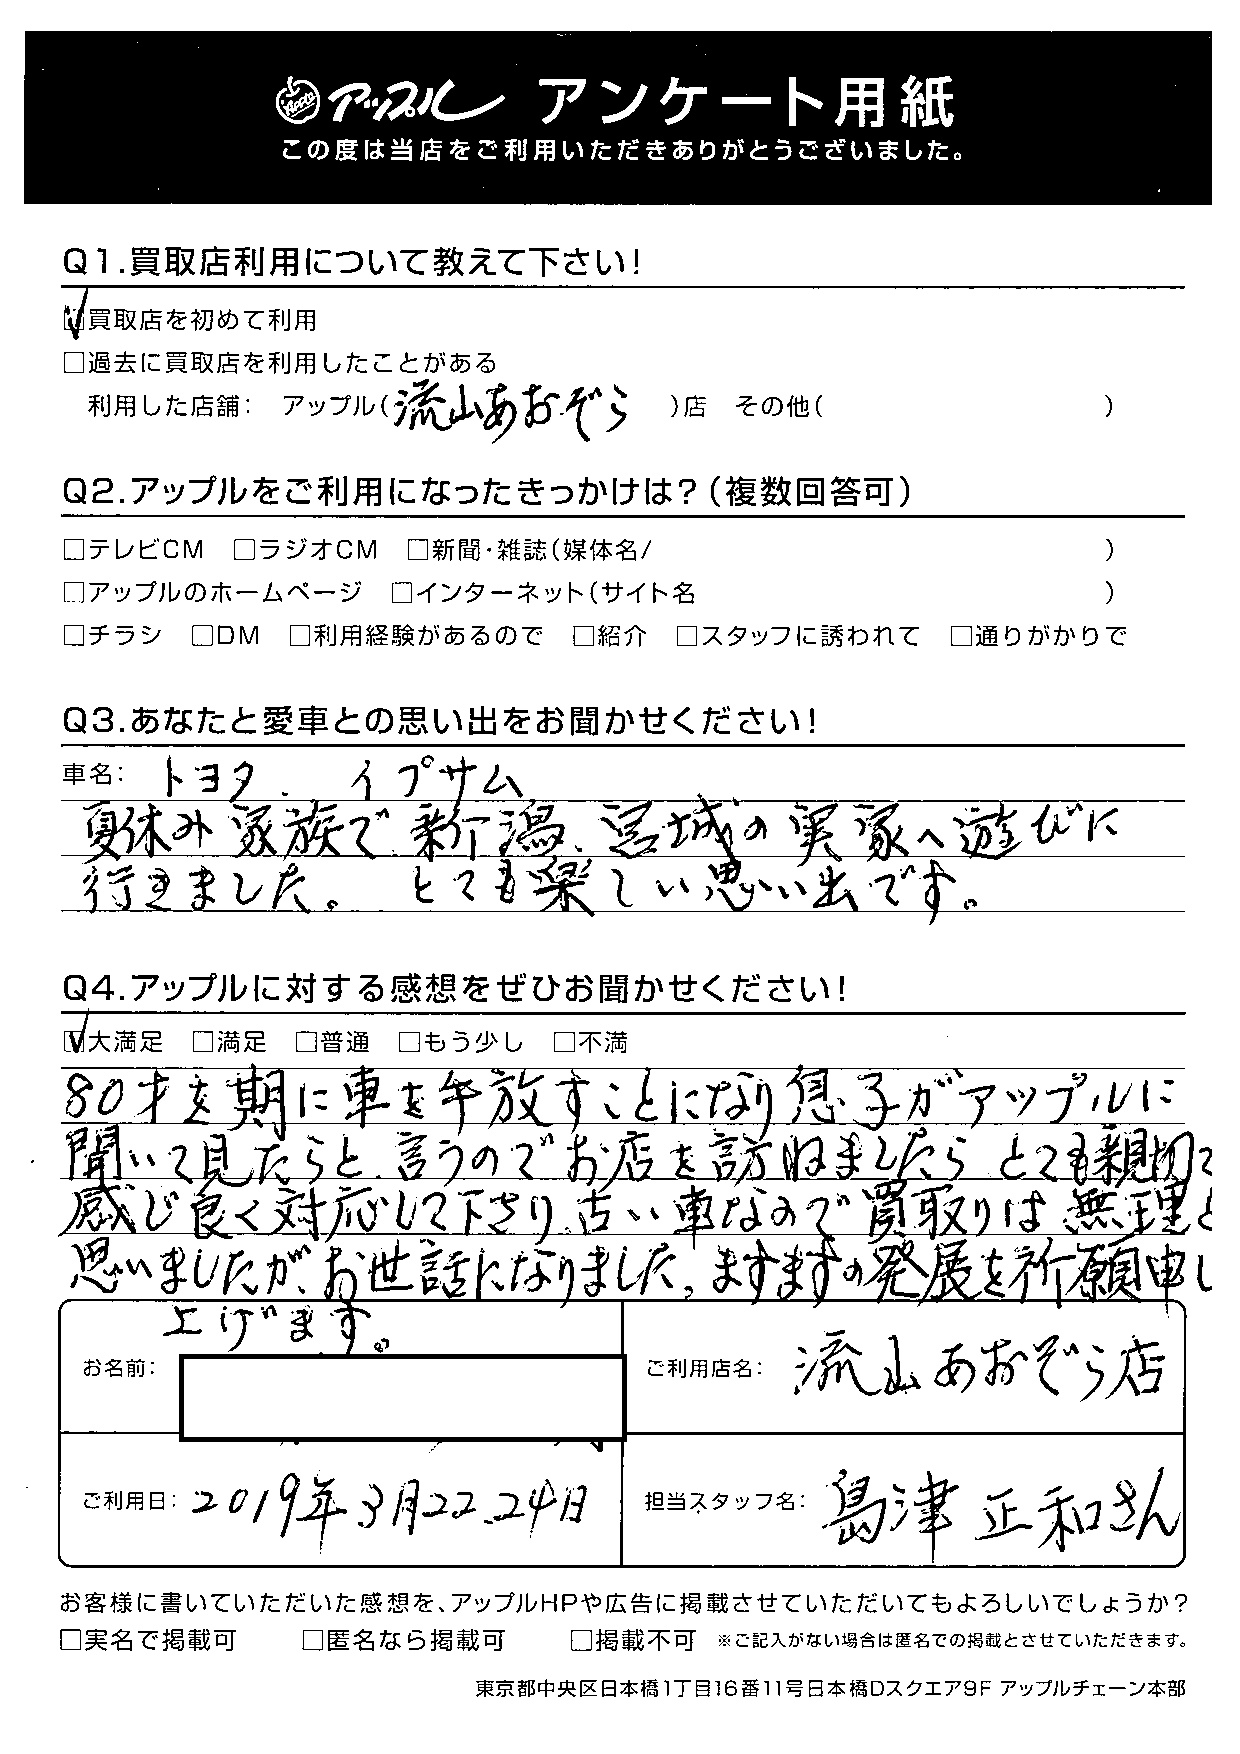 Apple アップル アンケート用紙
この度は当店をご利用いただきありがとうございました。
Q1.買取店利用について教えて下さい!
☑買取店を初めて利用
□過去に買取店を利用したことがある
利用した店舗: アップル(流山あおぞら)店 その他( )
Q2.アップルをご利用になったきっかけは?(複数回答可)
□テレビCM □ラジオCM □新聞・雑誌(媒体名/ )
□アップルのホームページ □インターネット(サイト名 )
□チラシ □DM □利用経験があるので □紹介 □スタッフに誘われて □通りがかりで
Q3.あなたと愛車との思い出をお聞かせください!
車名: トヨタ. イプサム
夏休み家族で新潟、宮城の実家へ遊びに
行きました。とても楽しい思い出です。
Q4.アップルに対する感想をぜひお聞かせください!
☑大満足 □満足 □普通 □もう少し □不満
80才を期に車を手放すことになり息子がアップルに
聞いて見たらと言うのでお店を訪ねましたらとても親切で
感じ良く対応して下さり、古い車なので買取りは無理と
思いましたが、お世話になりました。ますますの発展を祈願申し
上げます。
お名前: ご利用店名: 流山あおぞら店
ご利用日: 2019年3月22.24日 担当スタッフ名: 島津 正和さん
お客様に書いていただいた感想を、アップルHPや広告に掲載させていただいてもよろしいでしょうか?
□実名で掲載可 □匿名なら掲載可 □掲載不可 ※ご記入がない場合は匿名での掲載とさせていただきます。
東京都中央区日本橋1丁目16番11号日本橋Dスクエア9F アップルチェーン本部